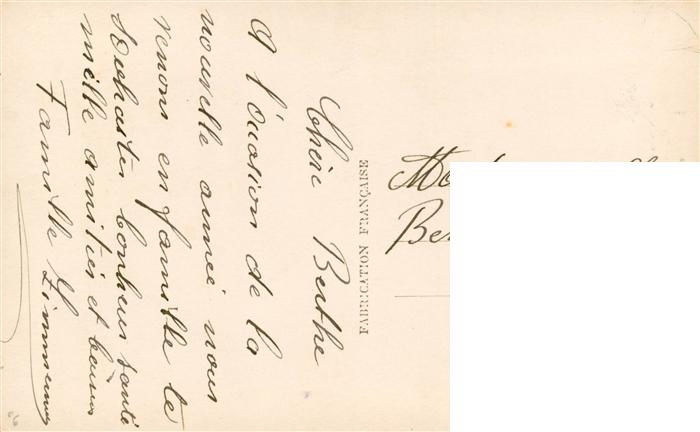 Chère Berthe
A l'ocasion de la
nouvelle année nous
venons en famille te
souhaiter bonheur santé
mille amitiés et baisers
Famille
FABRICATION FRANÇAISE